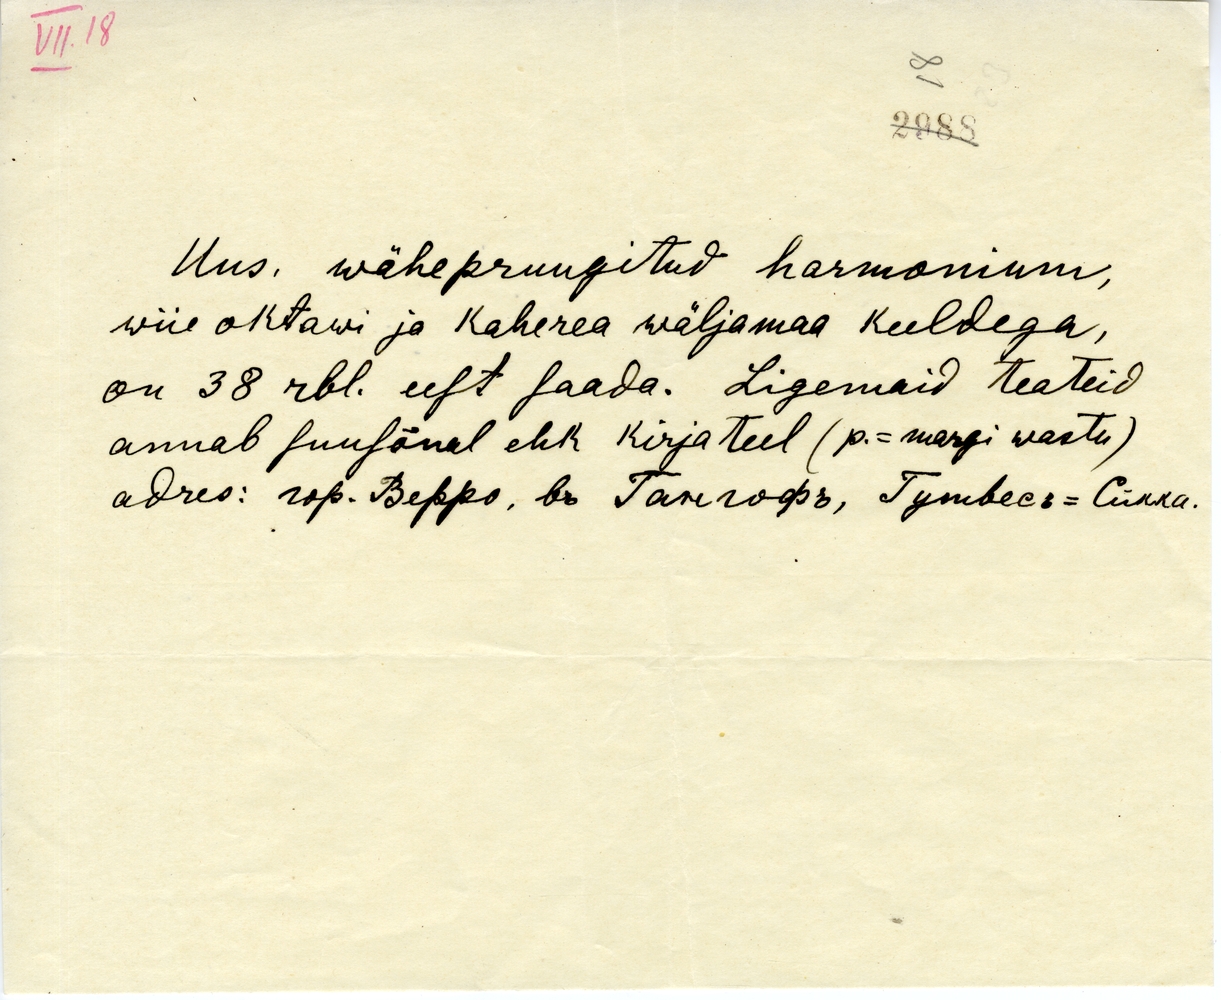 VII. 18
81
2988
Uus, wähepruugitud harmonium,
wiie oktawi ja kaherea wäljamaa keeldega,
on 38 rbl. eeſt ſaada. Ligemaid teateid
annab ſuuſõnal ehk kirjateel (p.=margi wastu)
adres: гор. Верро, въ Гангофъ, Гутвесъ=Сикка.